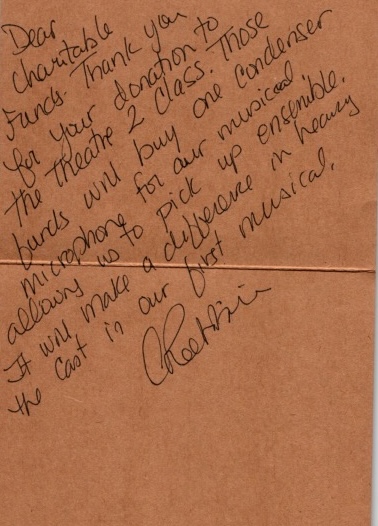 Dear
Charitable
Funds. Thank you
for your donation to
the Theatre 2 Class. Those
funds will buy one condenser
microphone for our musical
allows us to pick up ensemble.
It will make a difference in hearing
the cast in our first musical.